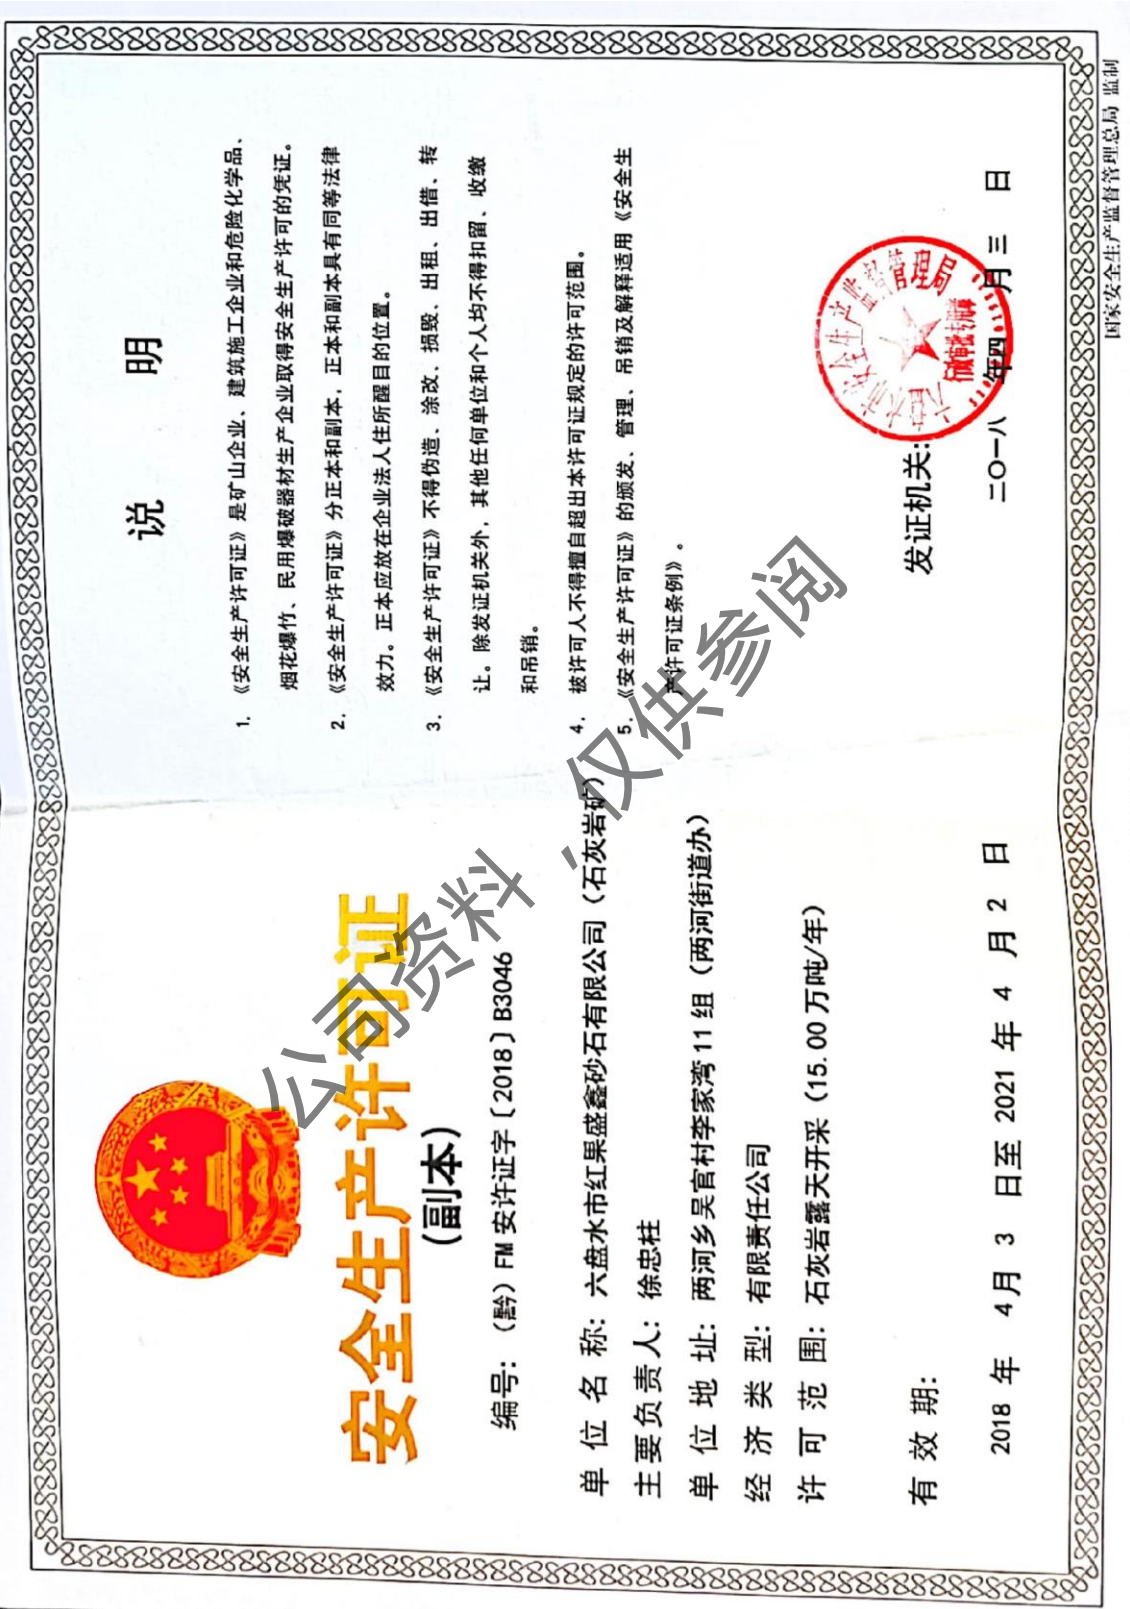 安全生产许可证
(副本)
编号：（黔）FM安许证字〔2018〕B3046
单位名称：六盘水市红果盛鑫砂石有限公司（石灰岩矿）
主要负责人：徐忠柱
单位地址：两河乡吴官村李家湾11组（两河街道办）
经济类型：有限责任公司
许可范围：石灰岩露天开采（15.00万吨/年）
有效期：
2018年 4月 3 日至2021年 4 月 2 日
说 明
1. 《安全生产许可证》是矿山企业、建筑施工企业和危险化学品、
烟花爆竹、民用爆破器材生产企业取得安全生产许可的凭证。
2. 《安全生产许可证》分正本和副本，正本和副本具有同等法律
效力。正本应放在企业法人住所醒目的位置。
3. 《安全生产许可证》不得伪造、涂改、损毁、出租、出借、转
让。除发证机关外，其他任何单位和个人均不得扣留、收缴
和吊销。
4. 被许可人不得擅自超出本许可证规定的许可范围。
5. 《安全生产许可证》的颁发、管理、吊销及解释适用《安全生
产许可证条例》。
发证机关:
六盘水市安全生产监督管理局
行政审批专用章
二〇一八年四月三日
国家安全生产监督管理总局 监制
公司资料，仅供参阅